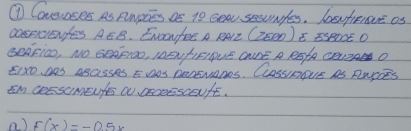 ① CONSIDERE AS FUNÇÕES DE 1º GRAU SEGUINTES. IDENTIFIQUE OS
COEFICIENTES A E B. ENCONTRE A RAIZ (ZERO) E ESBOCE O
GRÁFICO, NO GRÁFICO, IDENTIFIQUE ONDE A RETA CRUZA O
EIXO DAS ABCISSAS E DAS ORDENADAS. CLASSIFIQUE AS FUNÇÕES
EM CRESCIMENTE OU DECRESCENTE.
a) F(x) = -0,5x